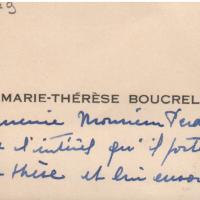 9
MARIE-THÉRÈSE BOUCREL
remercie Monsieur
l'intérêt qu'il porte
thèse et lui